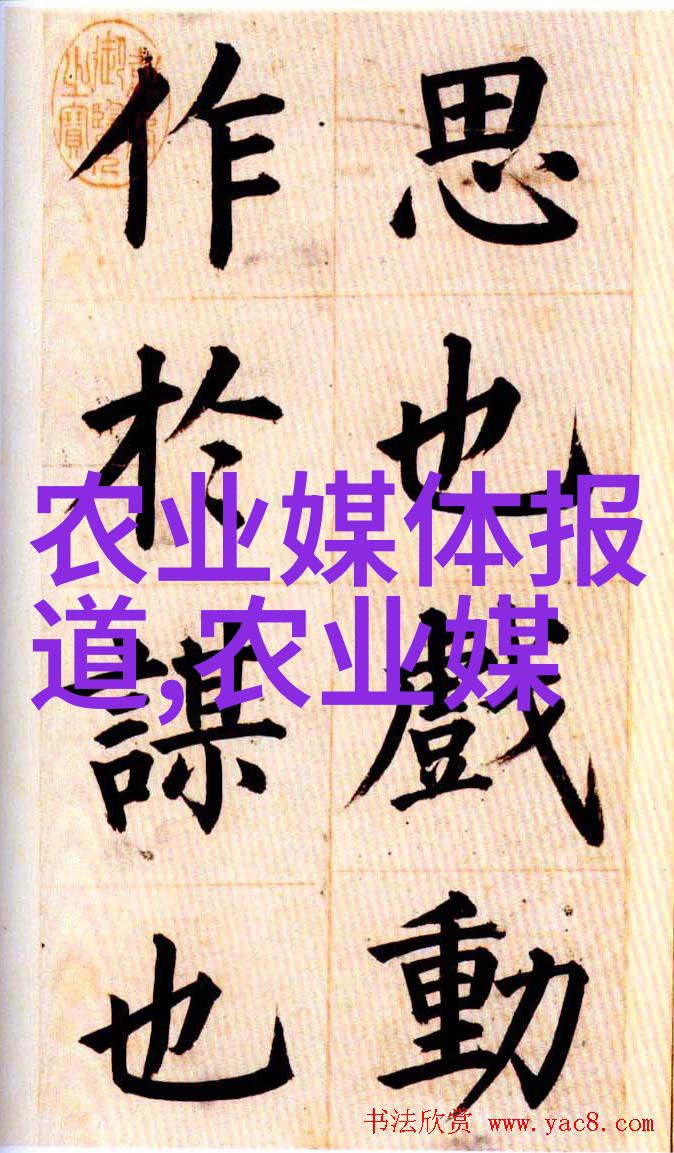 思也戲動
作於謀也
农业媒体报
道,农业媒
书法欣赏 www.yac8.com